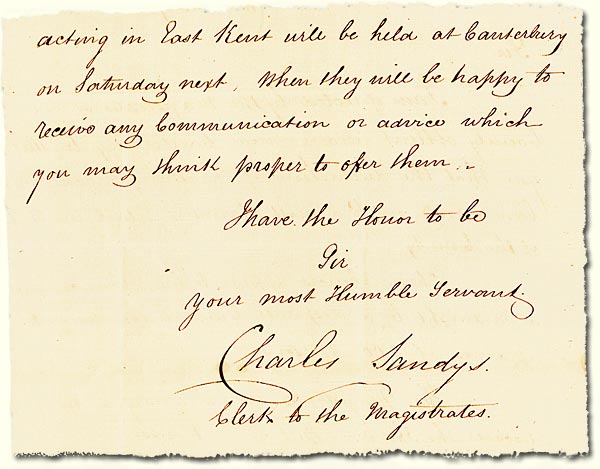 acting in East Kent will be held at Canterbury
on Saturday next, When they will be happy to
receive any Communication or advice which
you may think proper to offer them..
I have the Honor to be
Sir
your most Humble Servant
Charles Sandys.
Clerk to the Magistrates.